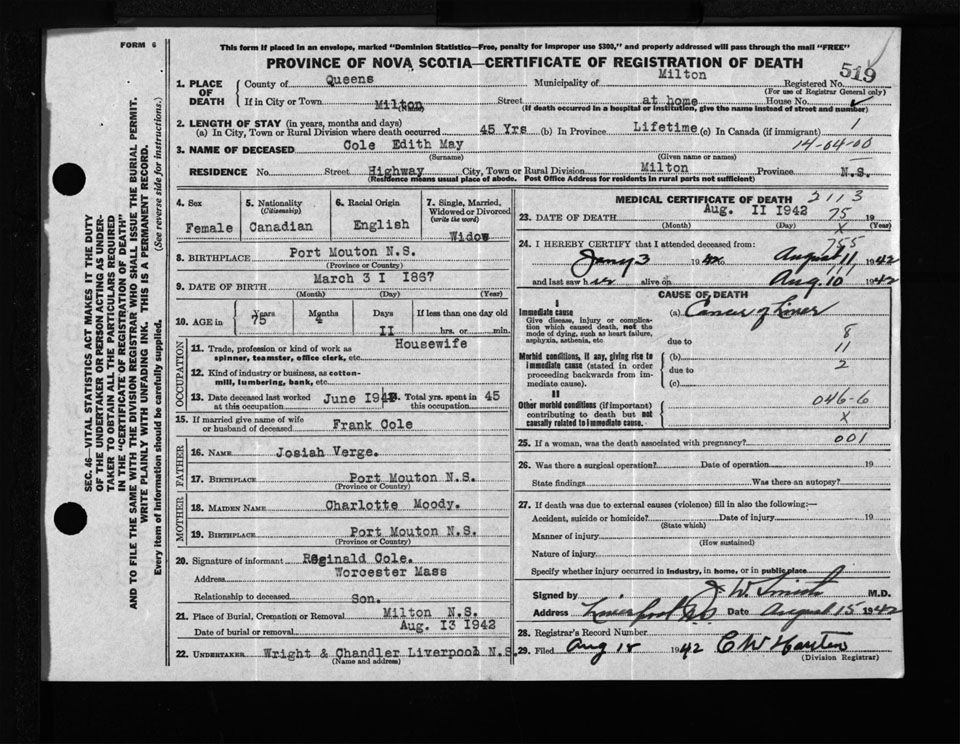 FORM 6
This form if placed in an envelope, marked "Dominion Statistics—Free, penalty for improper use $300," and properly addressed will pass through the mail "FREE"
PROVINCE OF NOVA SCOTIA—CERTIFICATE OF REGISTRATION OF DEATH
519
1. PLACE OF DEATH
County of Queens Municipality of Milton Registered No.
(For use of Registrar General only)
If in City or Town Milton Street at home House No.
(If death occurred in a hospital or institution, give the name instead of street and number)
2. LENGTH OF STAY (in years, months and days)
(a) In City, Town or Rural Division where death occurred 45 Yrs (b) In Province Lifetime (c) In Canada (if immigrant) 1
3. NAME OF DECEASED Cole Edith May 14-04-00
(Surname) (Given name or names)
RESIDENCE No. Street Highway City, Town or Rural Division Milton Province N.S.
(Residence means usual place of abode. Post Office Address for residents in rural parts not sufficient)
4. Sex
Female
5. Nationality
(Citizenship)
Canadian
6. Racial Origin
English
7. Single, Married, Widowed or Divorced
(write the word)
Widow
8. BIRTHPLACE Port Mouton N.S.
(Province or Country)
9. DATE OF BIRTH March 3 I 1867
(Month) (Day) (Year)
10. AGE in
Years Months Days If less than one day old
75 4 II hrs. or min.
OCCUPATION
11. Trade, profession or kind of work as Housewife
spinner, teamster, office clerk, etc.
12. Kind of industry or business, as cotton-
mill, lumbering, bank, etc.
13. Date deceased last worked at this occupation June 194
14. Total yrs. spent in this occupation 45
15. If married give name of wife or husband of deceased Frank Cole
FATHER
16. NAME Josiah Verge.
17. BIRTHPLACE Port Mouton N.S.
(Province or Country)
MOTHER
18. MAIDEN NAME Charlotte Moody.
19. BIRTHPLACE Port Mouton N.S.
(Province or Country)
20. Signature of informant Reginald Cole.
Address Worcester Mass
Relationship to deceased Son.
21. Place of Burial, Cremation or Removal Milton N.S.
Date of burial or removal Aug. I3 1942
22. UNDERTAKER Wright & Chandler Liverpool N.S.
(Name and address)
MEDICAL CERTIFICATE OF DEATH 2113
23. DATE OF DEATH Aug. II 1942 75 19
(Month) (Day) (Year)
X
24. I HEREBY CERTIFY that I attended deceased from: 755
Jany 3 1942 August 11, 1942
and last saw her alive on Aug. 10 1942
CAUSE OF DEATH
I
Immediate cause (a) Cancer of Liver
Give disease, injury or complication which caused death, not the mode of dying, such as heart failure, asphyxia, asthenia, etc.
8
due to
11
Morbid conditions, if any, giving rise to immediate cause (stated in order proceeding backwards from immediate cause).
(b)
due to 2
(c)
II
Other morbid conditions (if important) contributing to death but not causally related to immediate cause.
046-6
X
25. If a woman, was the death associated with pregnancy? 001
26. Was there a surgical operation? Date of operation 19
State findings Was there an autopsy?
27. If death was due to external causes (violence) fill in also the following:—
Accident, suicide or homicide? Date of injury 19
(State which)
Manner of injury
(How sustained)
Nature of injury
Specify whether injury occurred in industry, in home, or in public place
Signed by J. W. Smith M.D.
Address Liverpool N.S. Date August 15 1942
28. Registrar's Record Number
29. Filed Aug 18 1942
(Division Registrar)
SEC. 46—VITAL STATISTICS ACT MAKES IT THE DUTY
OF THE UNDERTAKER OR PERSON ACTING AS UNDER-
TAKER TO OBTAIN ALL THE PARTICULARS REQUIRED
IN THE "CERTIFICATE OF REGISTRATION OF DEATH"
AND TO FILE THE SAME WITH THE DIVISION REGISTRAR WHO SHALL ISSUE THE BURIAL PERMIT.
WRITE PLAINLY WITH UNFADING INK. THIS IS A PERMANENT RECORD.
Every item of information should be carefully supplied. (See reverse side for instructions.)